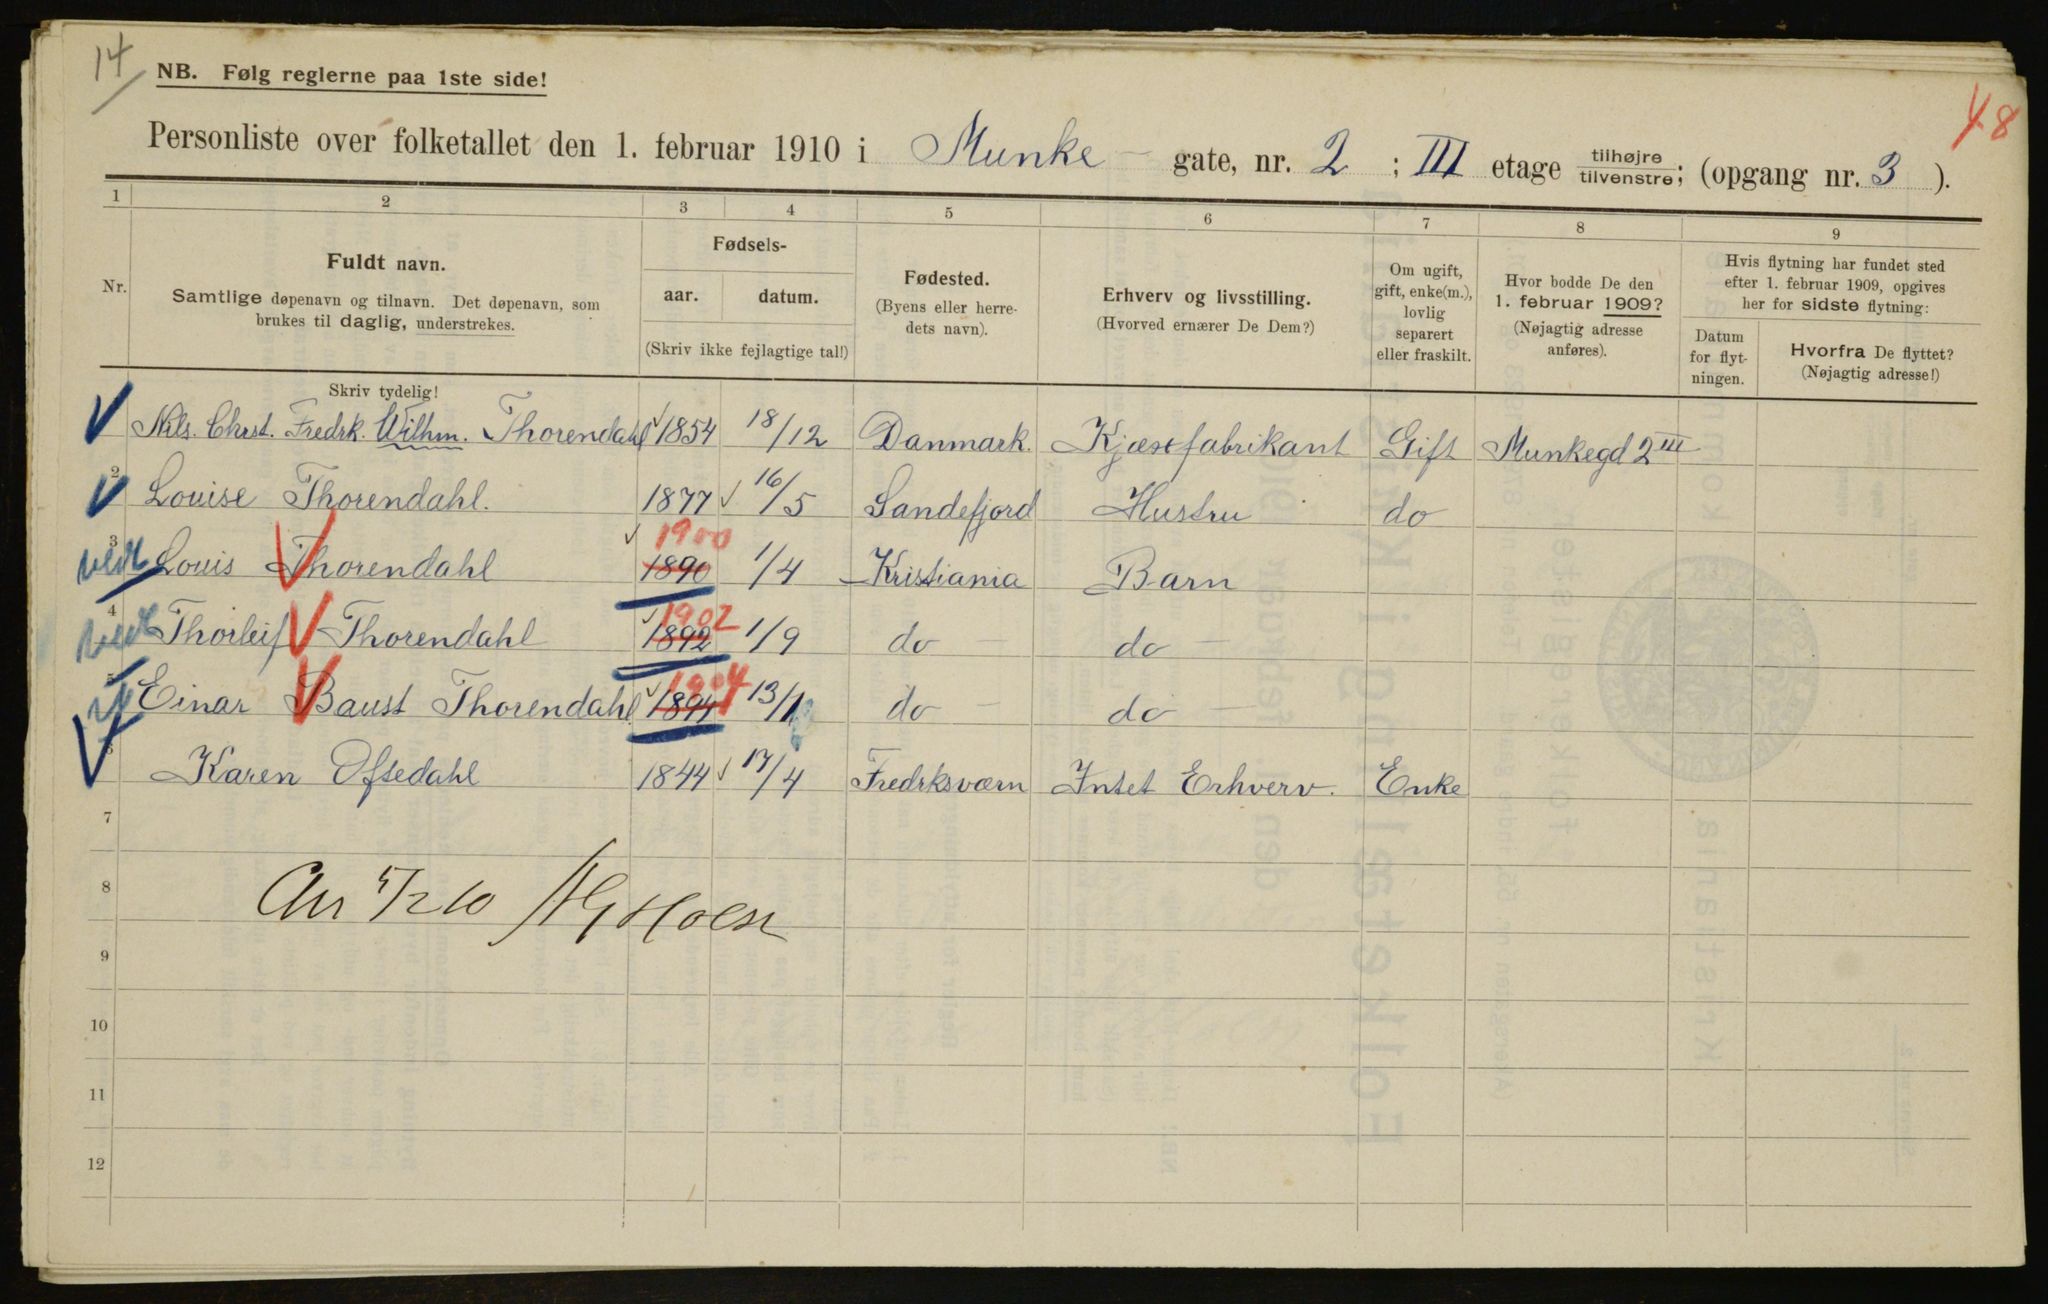 14
NB. Følg reglerne paa 1ste side!
48
Personliste over folketallet den 1. februar 1910 i Munke- gate, nr. 2 ; III etage tilhøjre/tilvenstre; (opgang nr. 3 ).
1 2 3 4 5 6 7 8 9
Nr. Fuldt navn. Samtlige døpenavn og tilnavn. Det døpenavn, som brukes til daglig, understrekes.
Fødsels- aar. datum. (Skriv ikke fejlagtige tal!)
Fødested. (Byens eller herredets navn).
Erhverv og livsstilling. (Hvorved ernærer De Dem?)
Om ugift, gift, enke(m.), lovlig separert eller fraskilt.
Hvor bodde De den 1. februar 1909? (Nøjagtig adresse anføres).
Hvis flytning har fundet sted efter 1. februar 1909, opgives her for sidste flytning:
Datum for flytningen. Hvorfra De flyttet? (Nøjagtig adresse!)
Skriv tydelig!
Nils. Chrst. Fredrk. Wilhm. Thorendahl 1854 18/12 Danmark. Kjæxfabrikant Gift Munkegd 2 III
2 Louise Thorendahl. 1877 16/5 Sandefjord Hustru do
3 Louis Thorendahl 1890 1900 1/4 Kristiania Barn
4 Thorleif Thorendahl 1892 1902 1/9 do - do -
5 Einar Baust Thorendahl 1894 1904 13/1 do - do -
6 Karen Ofsedahl 1844 17/4 Fredrksværn Intet Erhverv. Enke
7
8
9
10
11
12